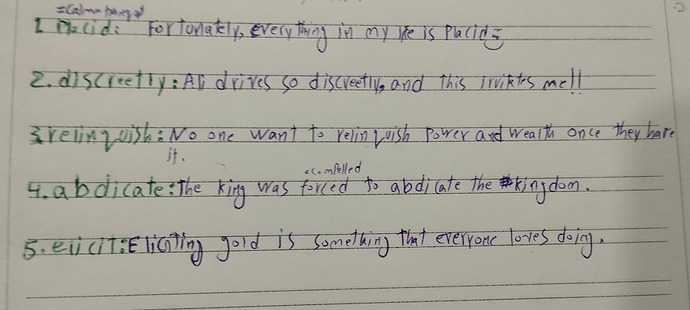 =calm
1. Placid: Fortunately, everything in my life is Placid
2. discreetly: Ali drives so discreetly, and this irritates me!!
3. relinquish: No one want to relinquish Power and wealth once they have
it.
=compelled
4. abdicate: The king was forced to abdicate the kingdom.
5. elicit: Eliciting gold is something that everyone loves doing.